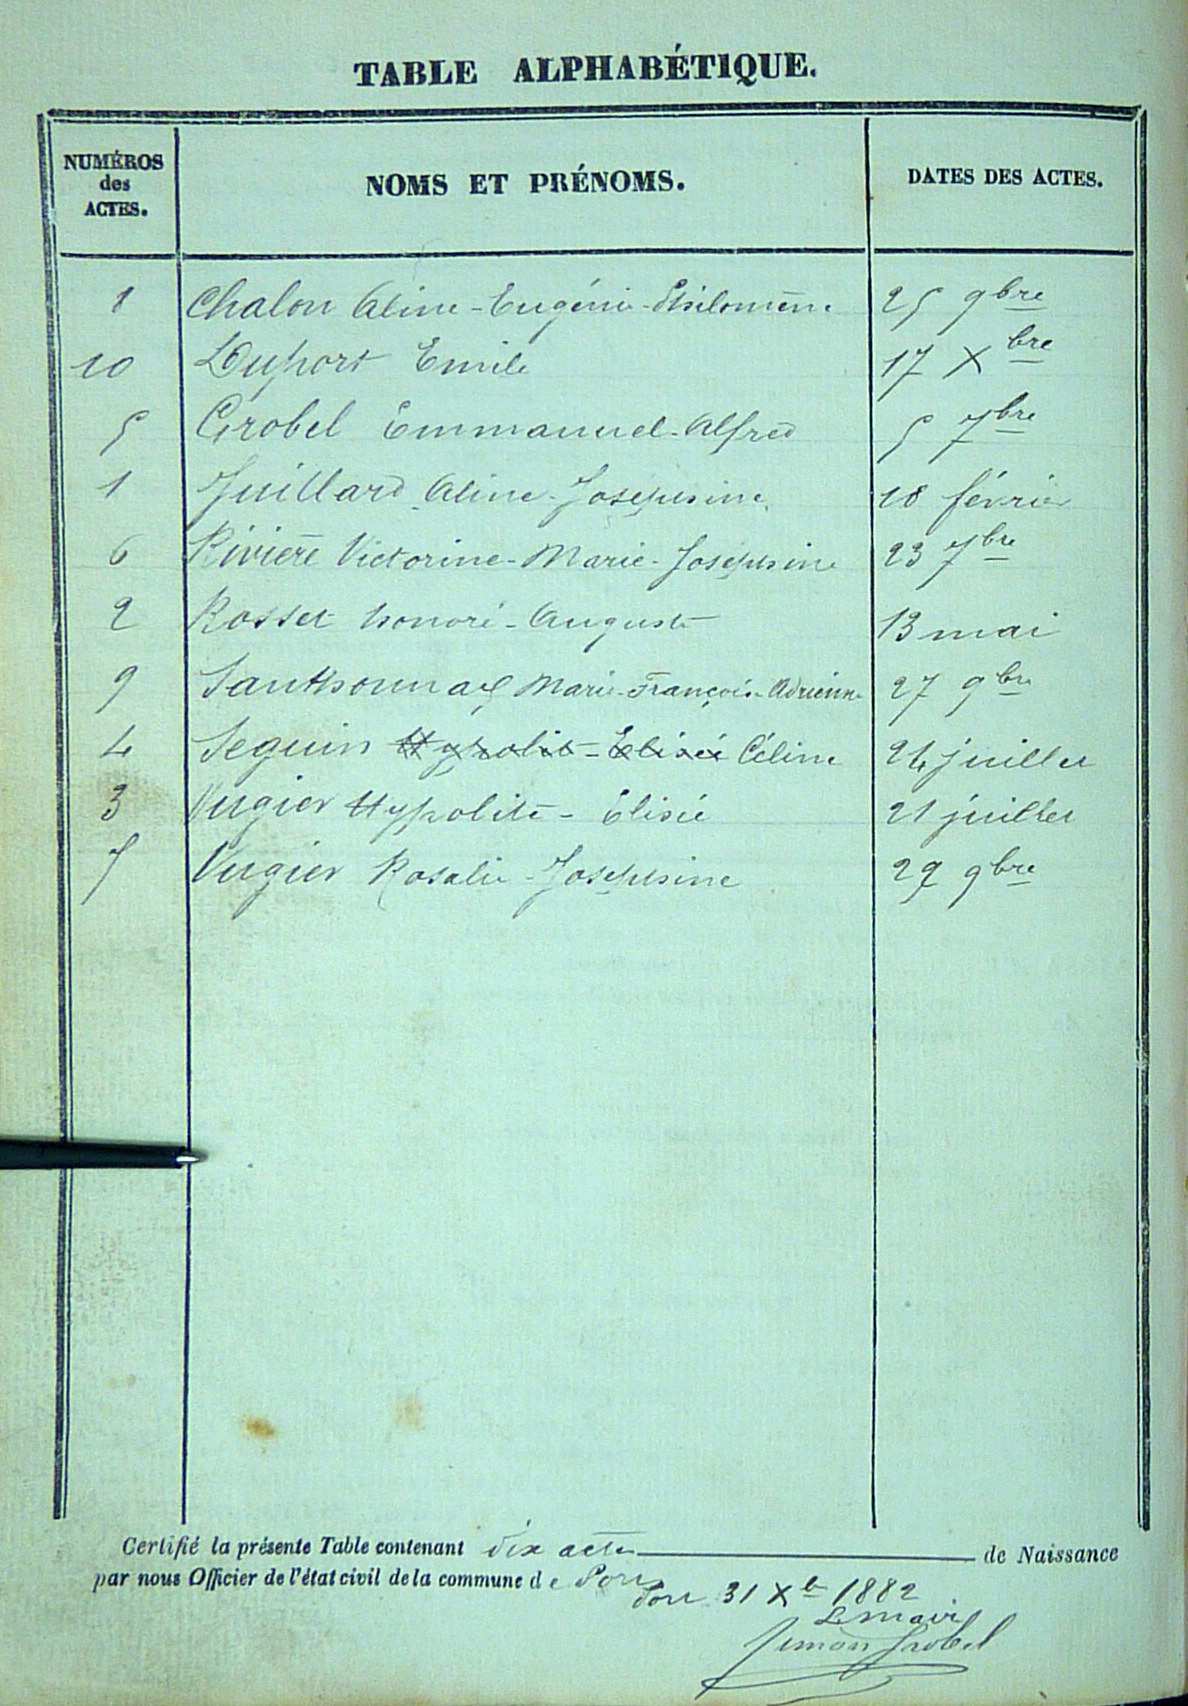 TABLE ALPHABÉTIQUE.
NUMÉROS des ACTES. NOMS ET PRÉNOMS. DATES DES ACTES.
8 Chalon Aline-Eugénie-Philomène 25 9bre
10 Duport Emile 17 Xbre
5 Grobel Emmanuel-Alfred 5 7bre
1 Juillard Aline-Josephine 18 février
6 Rivière Victorine-Marie-Josephine 23 7bre
2 Rosset honoré-Auguste 13 mai
9 Santhonnax Marie-François-Adrienne 27 9bre
4 Seguin Hypolite-Elisée Céline 24 juillet
3 Vugier Hypolite-Elisée 21 juillet
7 Vugier Rosalie-Josephine 22 9bre
Certifié la présente Table contenant dix actes de Naissance
par nous Officier de l'état civil de la commune de
31 Xbre 1882
Le maire
Simon Grobel